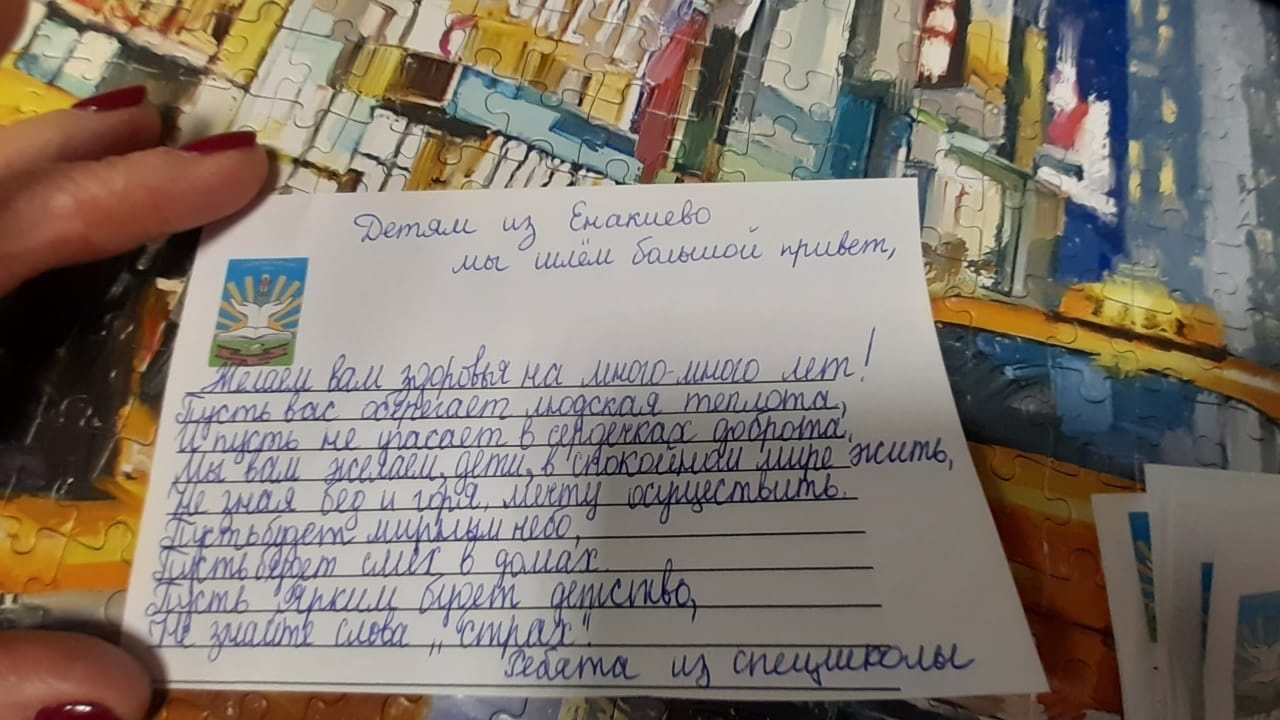 Детям из Енакиево
мы шлём большой привет,
Желаем вам здоровья на много-много лет!
Пусть вас оберегает людская теплота,
И пусть не угасает в сердечках доброта.
Мы вам желаем, дети, в спокойном мире жить,
Не зная бед и горя, мечту осуществить.
Пусть будет мирным небо,
Пусть будет смех в домах.
Пусть ярким будет детство,
Не знайте слова „страх".
Ребята из спецшколы